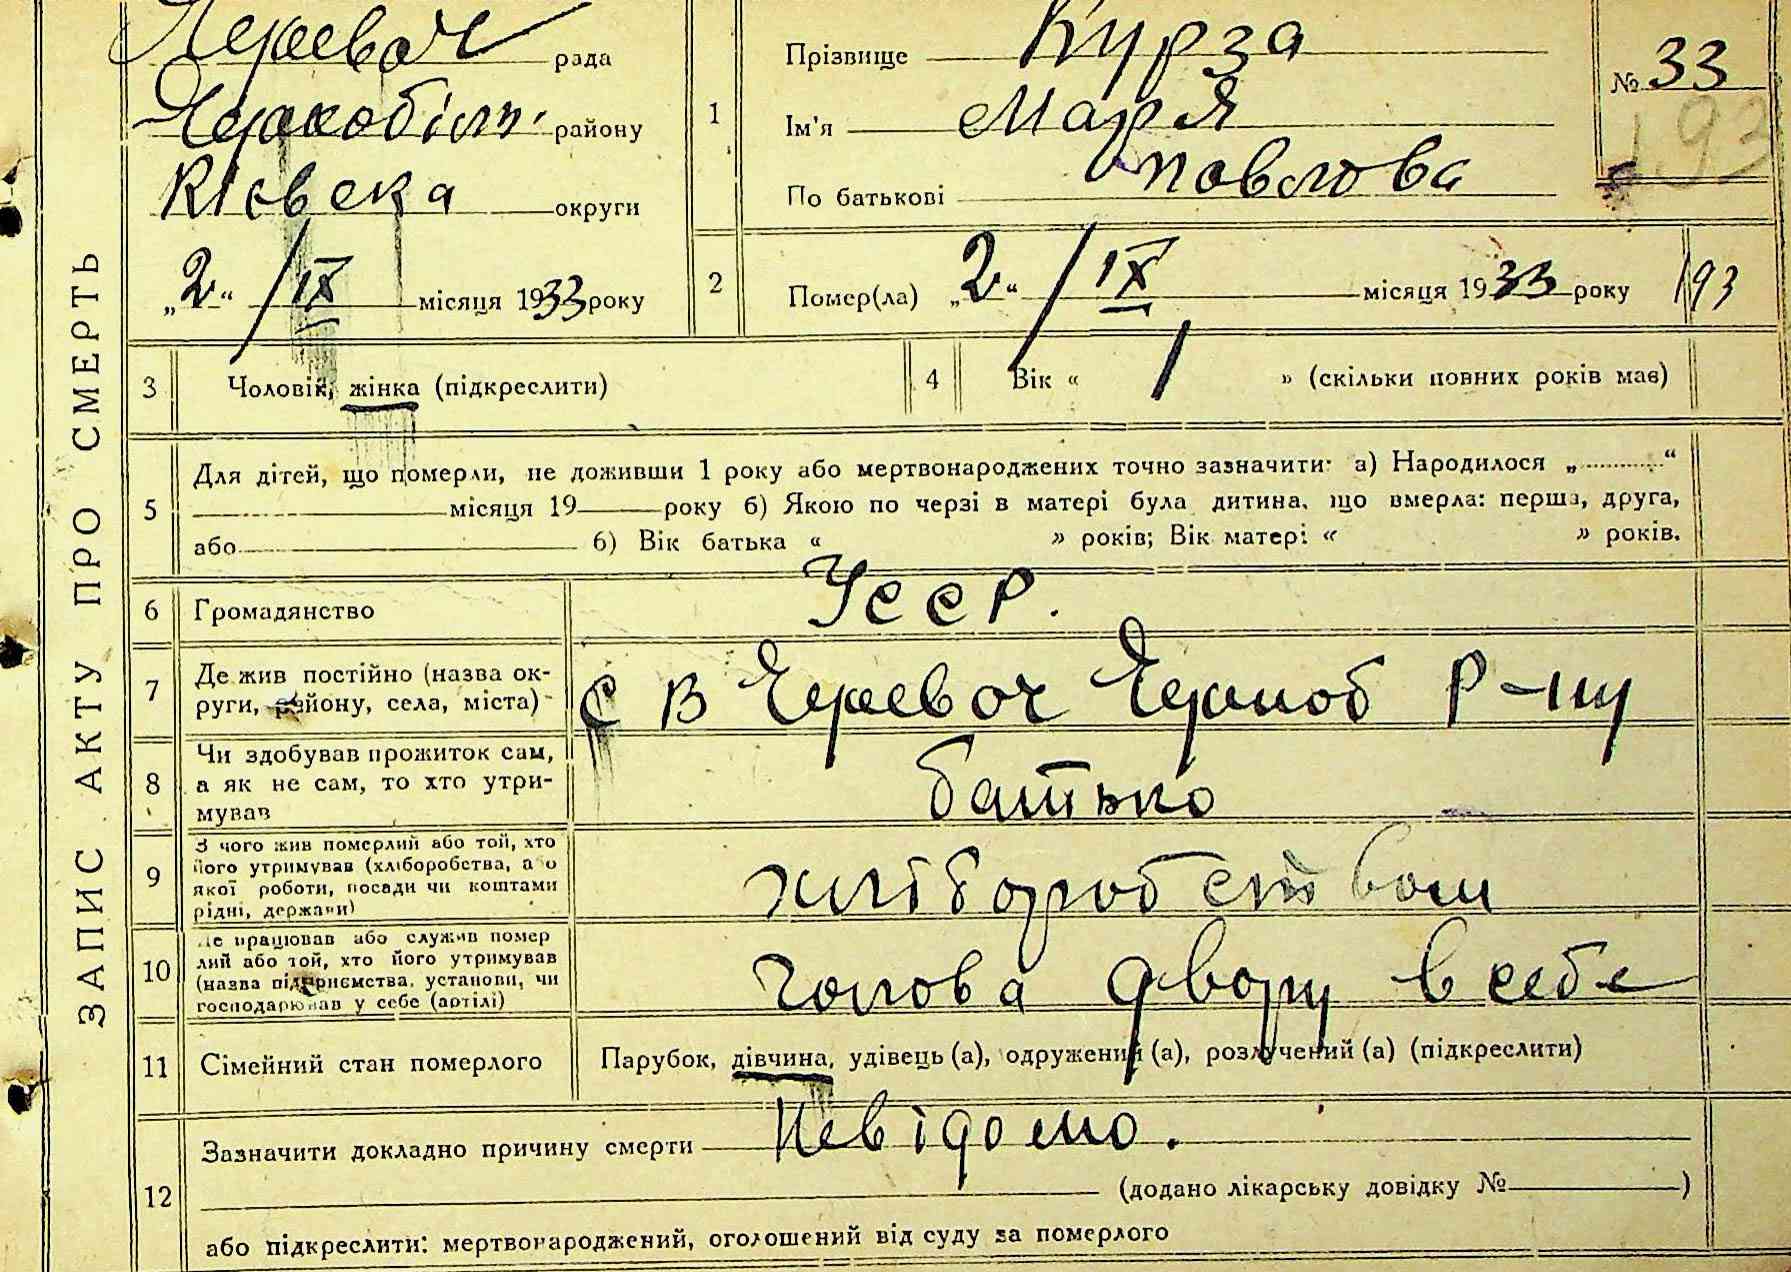 ЗАПИС АКТУ ПРО СМЕРТЬ
Черевач рада
Чорнобіль. району
Київска округи
„2“ / IX місяця 1933 року
1
Прізвище Курза
Ім'я Марʼя
По батькові Павлова
№ 33
193
2
Помер(ла) „2“ / IX місяця 1933 року
193
3 Чоловік, жінка (підкреслити)
4 Вік « 1 » (скільки повних років має)
5
Для дітей, що померли, не доживши 1 року або мертвонароджених точно зазначити: а) Народилося „ “
місяця 19 року б) Якою по черзі в матері була дитина, що вмерла: перша, друга,
або б) Вік батька « » років; Вік матері « » років.
6 Громадянство УССР.
7 Де жив постійно (назва ок-
руги, району, села, міста)
С В Черевач Чорноб р-ну
8 Чи здобував прожиток сам,
а як не сам, то хто утри-
мував
батько
9 З чого жив померлий або той, хто
його утримував (хліборобства, або
якої роботи, посади чи коштами
рідні, держави)
хліборобством
10 Де працював або служив помер
лий або той, хто його утримував
(назва підприємства, установи, чи
господарював у себе (артілі)
голова двору в себе
11 Сімейний стан померлого Парубок, дівчина, удівець (а), одружений (а), розлучений (а) (підкреслити)
12
Зазначити докладно причину смерти Невідомо.
(додано лікарську довідку № )
або підкреслити: мертвонароджений, оголошений від суду за померлого